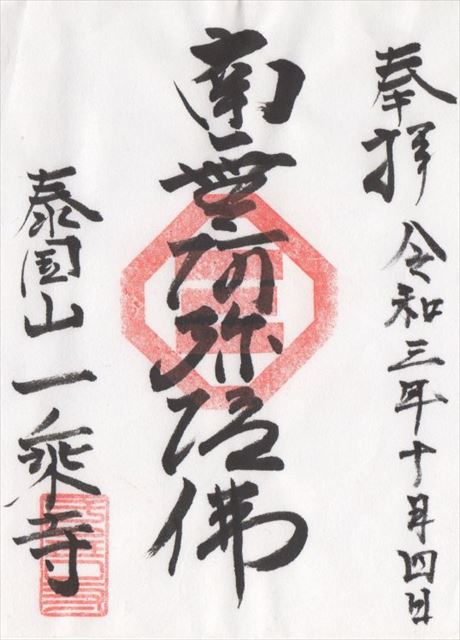 奉拝 令和三年十月四日
南無阿弥陀佛
泰国山 一乘寺